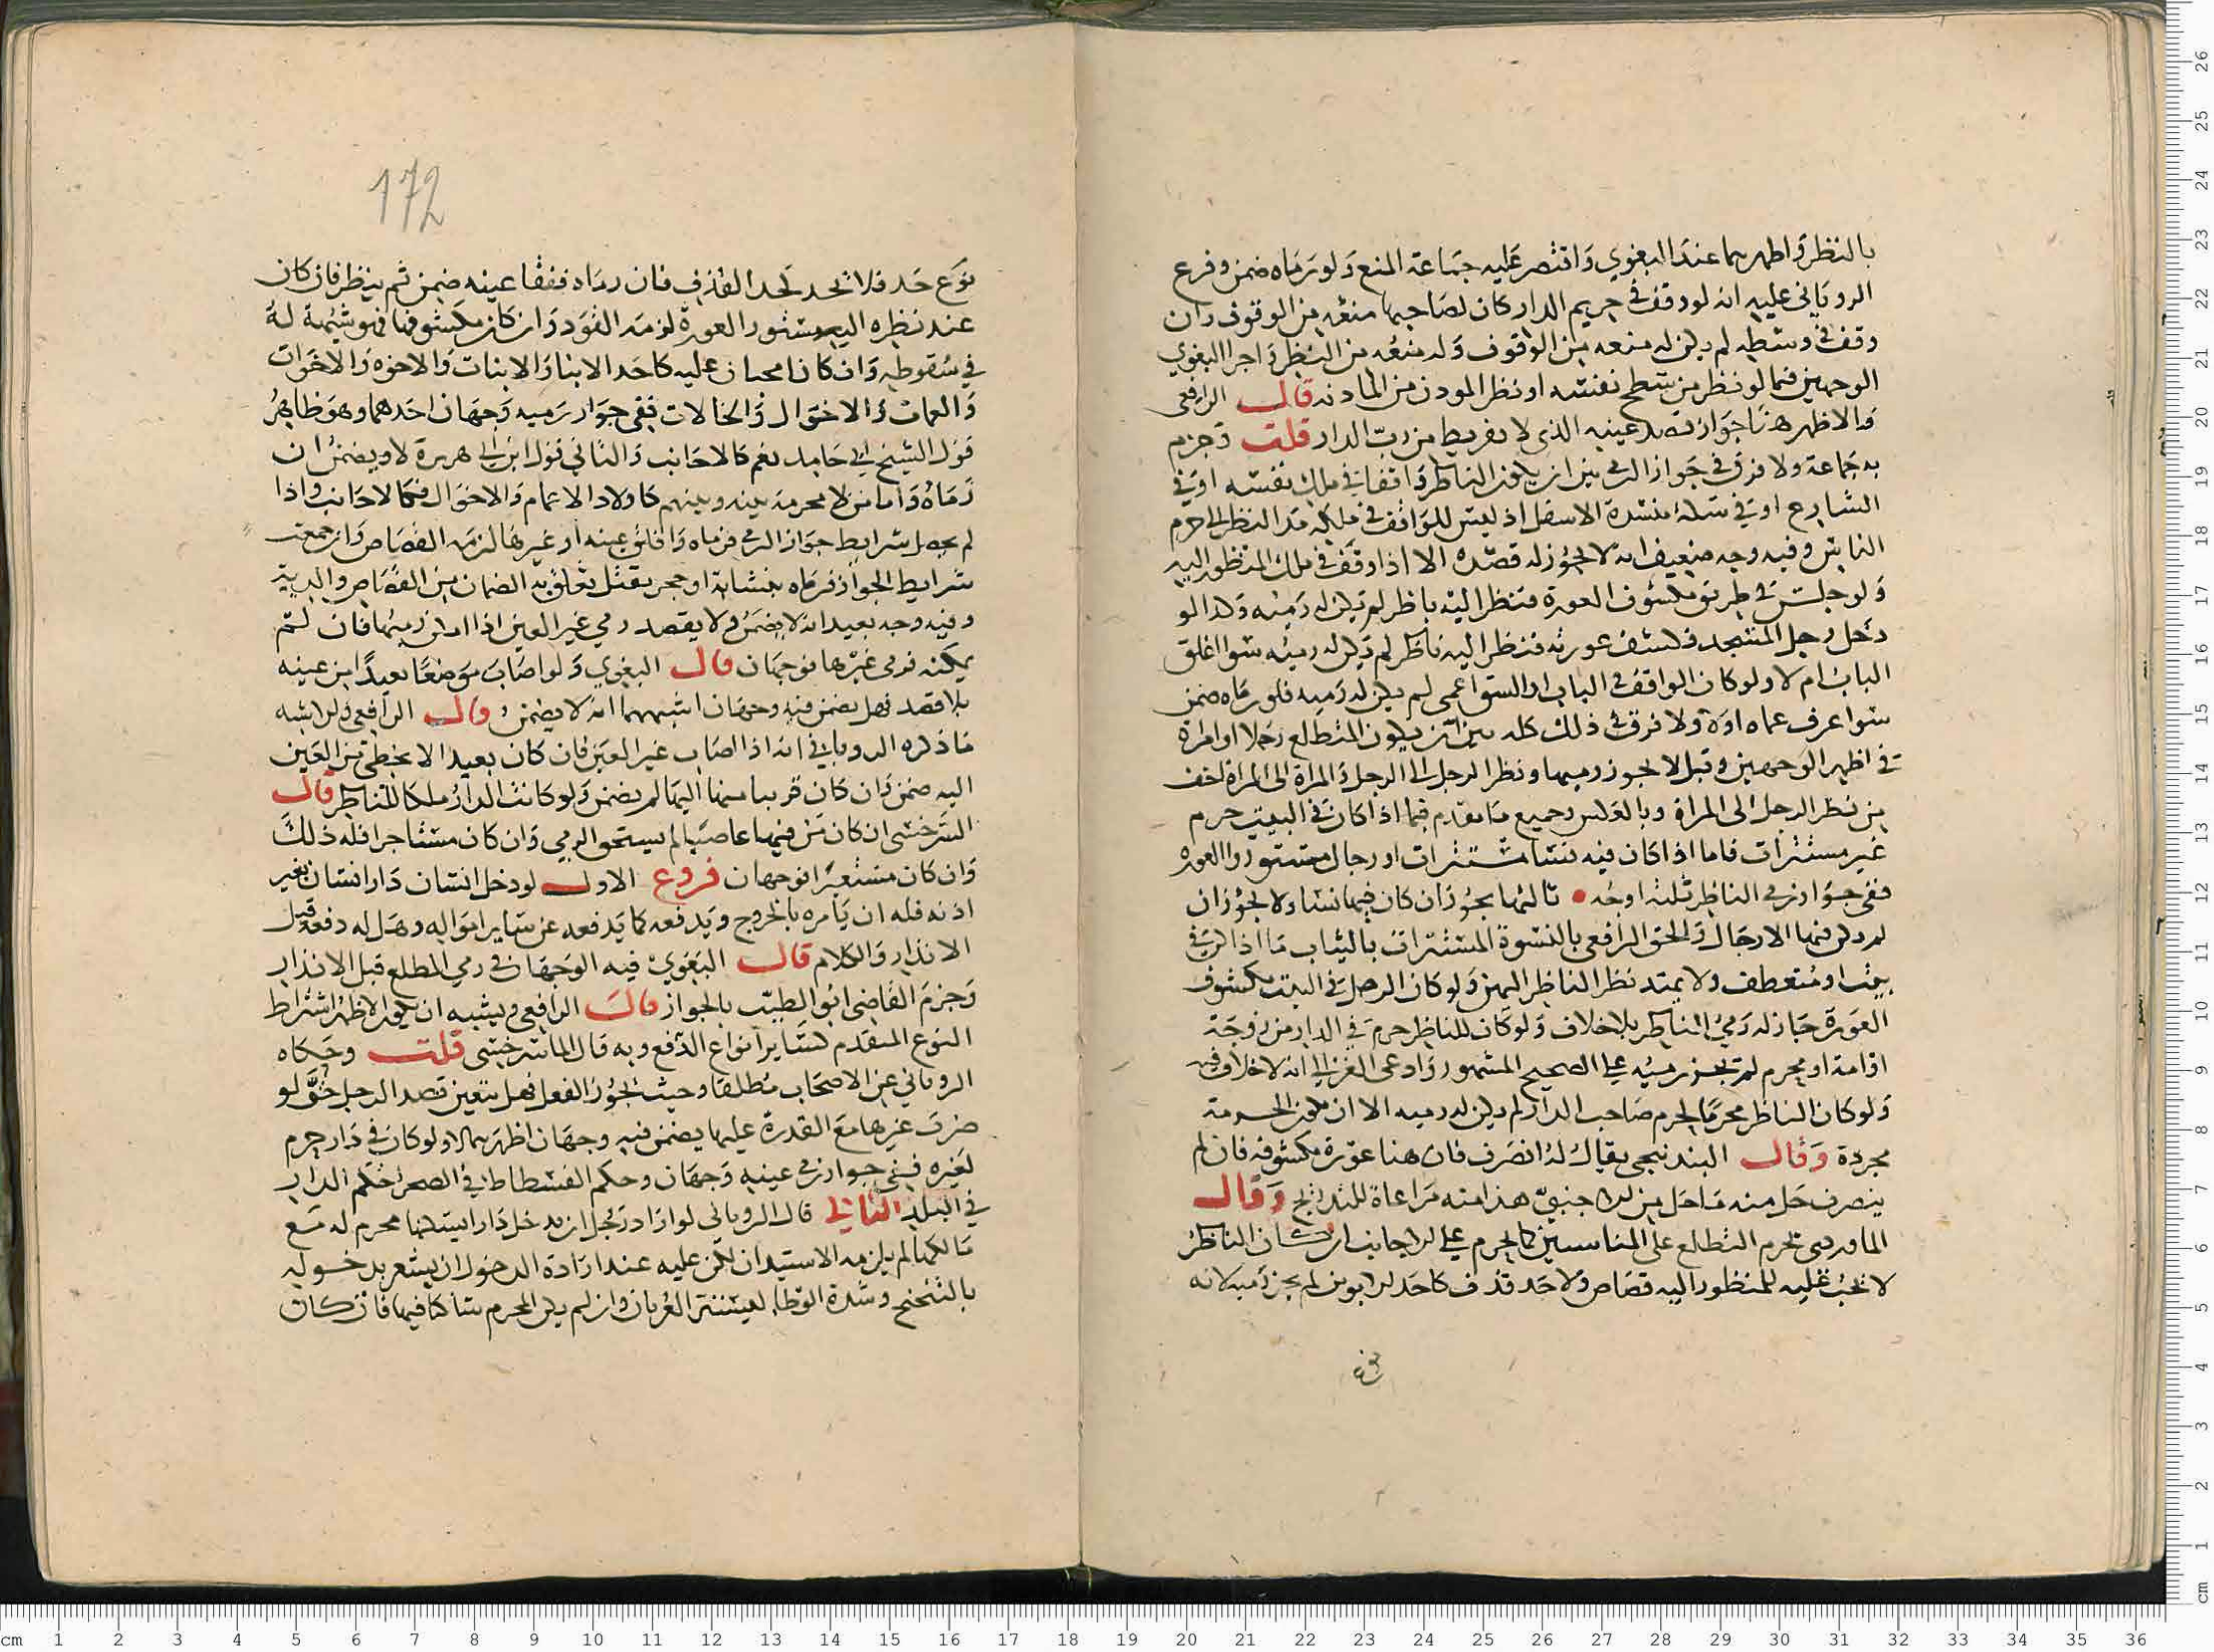 بالنظر واظهرهما عند البغوي واقتصر عليه جماعة المنع ولو رماه ضمن وفرع
الروياني عليه انه لو وقف في حريم الدار كان لصاحبها منعه من الوقوف وان
وقف في وسطه لم يكن له منعه من الوقوف وله منعه من النظر واجرا البغوي
الوجهين فيما لو نظر من سطح نفسه او نظر المودن من الماذنه قال الرافعي
والاظهر هنا جواز قصد عينه الذي لا تفريط من رب الدار قلت وجزم
به جماعة ولا فرق في جواز الرمي بين ان يكون الناظر واقفا في ملك نفسه او في
الشارع او في سكة منسدة الاسفل اذ ليس للواقف في ملكه مد النظر الى حرم
الناس وفيه وجه ضعيف انه لا يجوز له قصده الا اذا وقف في ملك المنظور اليه
ولو جلس في طريق مكشوف العورة فنظر اليه ناظر لم يكن له رميه وكذا لو
دخل رجل المسجد وكشف عورته فنظر اليه ناظر لم يكن له رميه سوا اغلق
الباب ام لا ولو كان الواقف في الباب او السترا اعمى لم يكن له رميه فلو رماه ضمن
سوا عرف عماه اولا ولا فرق في ذلك كله بين ان يكون المتطلع رجلا او امراة
في اظهر الوجهين وقيل لا يجوز رميها ونظر الرجل الى الرجل والمراة الى المراة اخف
من نظر الرجل الى المراة وبالعكس وجميع ما تقدم فيما اذا كان في البيت حرم
غير مستترات فاما اذا كان فيه نسا مستترات او رجال مستوروا العوره
ففي جواز رمي الناظر ثلثه اوجه ثالثها يجوز ان كان فيها نسا ولا يجوز ان
لم يكن فيها الا رجال والحق الرافعي بالنسوة المستترات بالثياب ما اذا كن في
بيت او منعطف ولا يمتد نظر الناظر اليهن ولو كان الرجل في البيت مكشوف
العورة جاز له رمي الناظر بلا خلاف ولو كان للناظر حرم في الدار من زوجة
او امة او محرم لم يجز رميه على الصحيح المشهور وادعى الغزالي انه لا خلاف فيه
ولو كان الناظر محرما لحرم صاحب الدار لم يكن له رميه الا ان تكون الحرمة
مجردة وقال البندنيجي يقال له انصرف فان هنا عورة مكشوفه فان لم
ينصرف حل منه ما حل من الاجنبي هذا منه مراعاة للتدريج وقال
الماوردي تحرم التطلع على المناسبين كما يحرم على الاجانب ان كان الناظر
لا يجب عليه للمنظور اليه قصاص ولا حد قذف كاحد الابوين لم يجز رميه لانه
نوع حد فلا يحد كحد القذف فان رماه ففقا عينه ضمن ثم ينظر فان كان
عند نظره اليه مستور العورة لزمه القود وان كان مكشوفها فهو شبهة له
في سقوطه وان كانا ممن عليه كاحد الابنا والابنات والاخوه والاخوات
والعمات والاخوال والخالات ففي جواز رميه وجهان احدهما وهو ظاهر
قول الشيخ ابي حامد نعم كالاجانب والثاني قول ابن ابي هريرة لا ويضمن ان
رماه واما من لا محرمة بينه وبينهم كاولاد الاعمام والاخوال فكالاجانب واذا
لم يحصل شرايط جواز الرمي فرماه وافلق عينه او غيرها لزمه القصاص وان جمعت
شرايط الجواز فرماه بنشابة او حجر يقتل تعلق به الضمان من القصاص والدية
وفيه وجه بعيد انه لا يضمن ولا يقصد رمي غير العين اذا امكن رميها فان لم
يمكنه فرمى غيرها فوجهان قال البغوي ولو اصاب موضعا بعيدا من عينه
بلا قصد فهل يضمن فيه وجهان اشبههما انه لا يضمن وقال الرافعي والاشبه
ما ذكره الروياني انه اذا اصاب غير العين فان كان بعيدا لا يخطي من العين
اليه ضمن وان كان قريبا منها اليها لم يضمن ولو كانت الدار ملكا للناظر قال
السرخسي ان كان من فيها غاصبا لم يستحق الرمي وان كان مستاجرا فله ذلك
وان كان مستعيرا فوجهان فروع الاول لو دخل انسان دار انسان بغير
اذنه فله ان يامره بالخروج ويدفعه كما يدفعه عن ساير امواله وهل له دفعه قبل
الانذار والكلام قال البغوي فيه الوجهان في رمي المطلع قبل الانذار
وجزم القاضي ابو الطيب بالجواز قال الرافعي ويشبه ان يكون الاظهر اشتراط
النوع المتقدم كساير انواع الدفع وبه قال الماسرخسي قلت وحكاه
الروياني عن الاصحاب مطلقا وحيث يجوز الفعل فهل يتعين قصد الرجل حتى لو
ضرب غيرها مع القدرة عليها يضمن فيه وجهان اظهرهما لا ولو كان في دار حرم
لغيره ففي جواز رمي عينه وجهان وحكم الفسطاط في الصحرا حكم الدار
في البلد الثاني قال الروياني لو اراد رجل ان يدخل دارا يسكنها محرم له مع
مالكها لم يلزمه الاستيذان لكن عليه عند ارادة الدخول ان يشعر بدخوله
بالتنحنح وشدة الوطا ليستتر العريان وان لم يكن المحرم ساكنا فيها فان كان
172